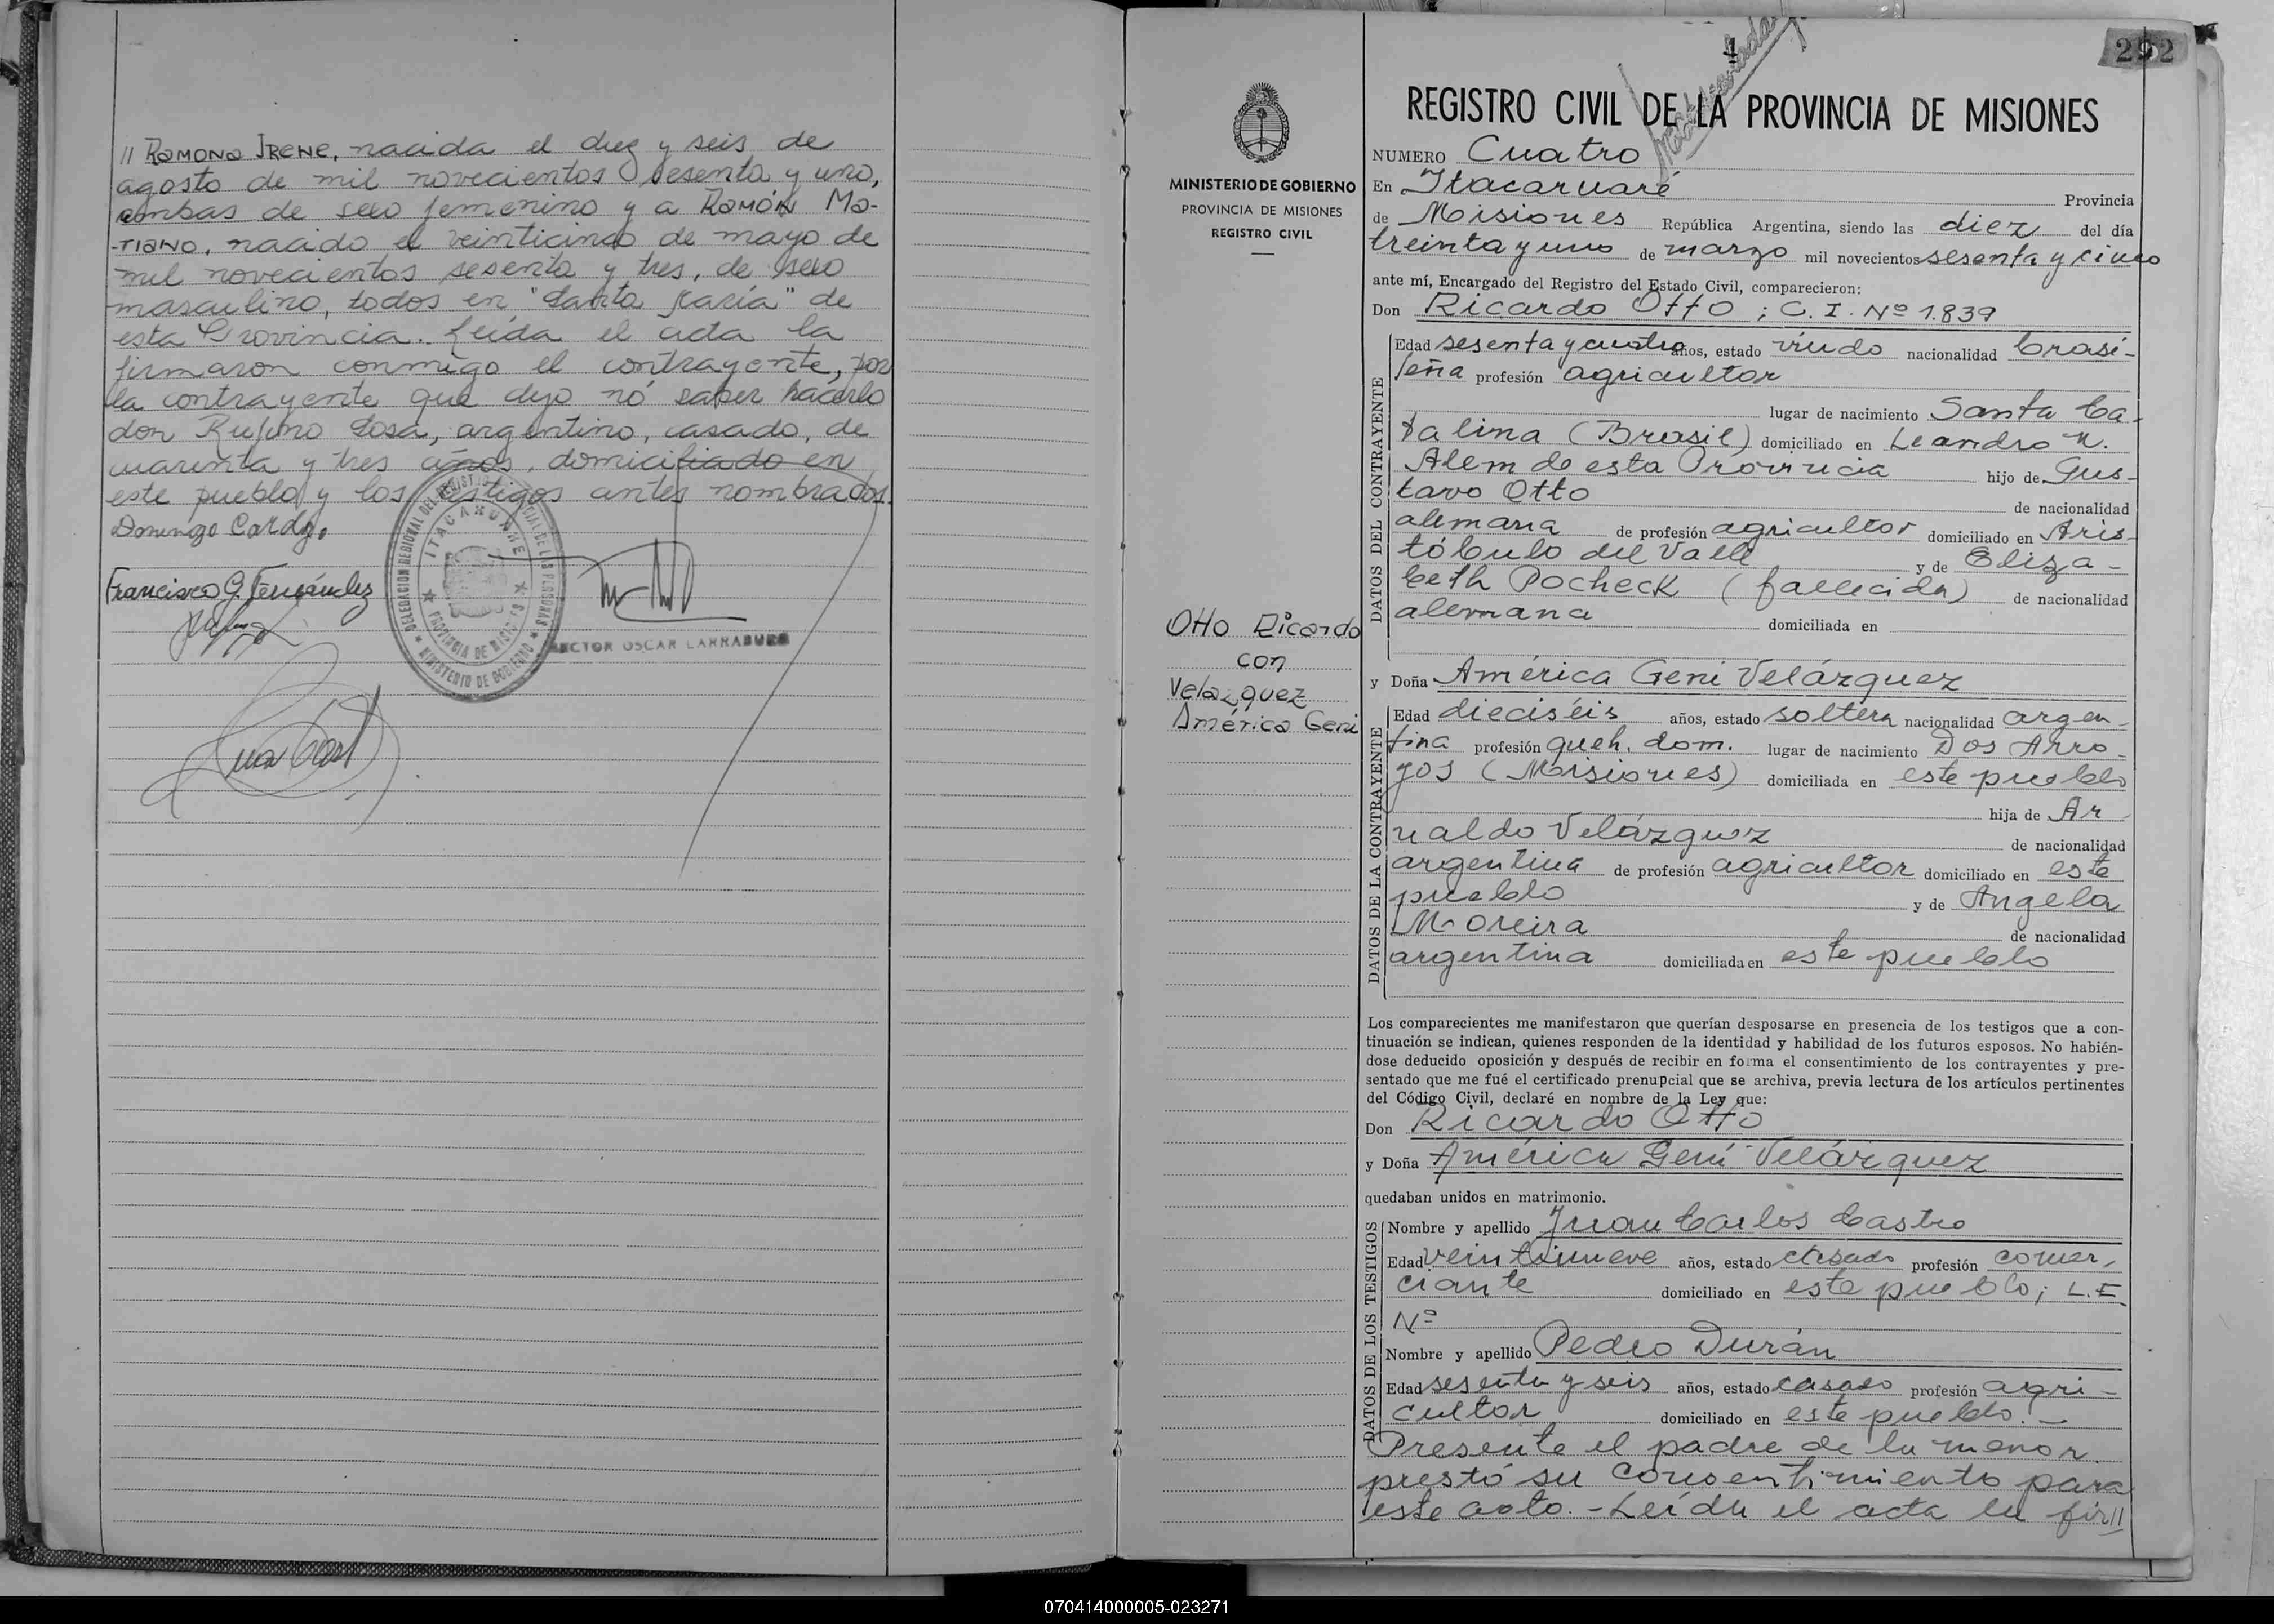 // RAMONA IRENE, nacida el diez y seis de
agosto de mil novecientos sesenta y uno,
ambas de sexo femenino y a RAMÓN MA-
-RIANO, nacido el veinticinco de mayo de
mil novecientos sesenta y tres, de sexo
masculino, todos en "Santa María" de
esta Provincia. Leída el acta la
firmaron conmigo el contrayente, por
la contrayente que dijo nó saber hacerlo
don Rufino Sosa, argentino, casado, de
cuarenta y tres años, domiciliado en
este pueblo y los testigos antes nombrados.
Domingo Cardozo
Francisco G. Fernández
DELEGACION REGIONAL DEL REGISTRO PROVINCIAL DE LAS PERSONAS
ITACARUARE
PROVINCIA DE MISIONES
MINISTERIO DE GOBIERNO
HECTOR OSCAR LARRABURE
MINISTERIO DE GOBIERNO
PROVINCIA DE MISIONES
REGISTRO CIVIL
Otto Ricardo
con
Velazquez
América Geni
1
292
REGISTRO CIVIL DE LA PROVINCIA DE MISIONES
NUMERO Cuatro
En Itacaruaré Provincia
de Misiones República Argentina, siendo las diez del día
treinta y uno de marzo mil novecientos sesenta y cinco
ante mí, Encargado del Registro del Estado Civil, comparecieron:
Don Ricardo Otto ; C. I. Nº 1.839
DATOS DEL CONTRAYENTE
Edad sesenta y cuatro años, estado viudo nacionalidad brasi-
leña profesión agricultor
lugar de nacimiento Santa Ca-
talina (Brasil) domiciliado en Leandro N.
Alem de esta Provincia hijo de Gus-
tavo Otto de nacionalidad
alemana de profesión agricultor domiciliado en Aris-
tóbulo del Valle y de Eliza-
beth Pocheck (fallecida) de nacionalidad
alemana domiciliada en
y Doña América Geni Velázquez
DATOS DE LA CONTRAYENTE
Edad dieciséis años, estado soltera nacionalidad argen-
tina profesión queh. dom. lugar de nacimiento Dos Arro-
yos (Misiones) domiciliada en este pueblo
hija de Ar
naldo Velázquez de nacionalidad
argentina de profesión agricultor domiciliado en este
pueblo y de Angela
Moreira de nacionalidad
argentina domiciliada en este pueblo
Los comparecientes me manifestaron que querían desposarse en presencia de los testigos que a con-
tinuación se indican, quienes responden de la identidad y habilidad de los futuros esposos. No habién-
dose deducido oposición y después de recibir en forma el consentimiento de los contrayentes y pre-
sentado que me fué el certificado prenupcial que se archiva, previa lectura de los artículos pertinentes
del Código Civil, declaré en nombre de la Ley que:
Don Ricardo Otto
y Doña América Geni Velázquez
quedaban unidos en matrimonio.
DATOS DE LOS TESTIGOS
Nombre y apellido Juan Carlos Castro
Edad veintinueve años, estado casado profesión comer-
ciante domiciliado en este pueblo; L.E.
Nº
Nombre y apellido Pedro Durán
Edad sesenta y seis años, estado casado profesión agri-
cultor domiciliado en este pueblo.-
Presente el padre de la menor
prestó su consentimiento para
este acto.- Leída el acta la fir//
070414000005-023271